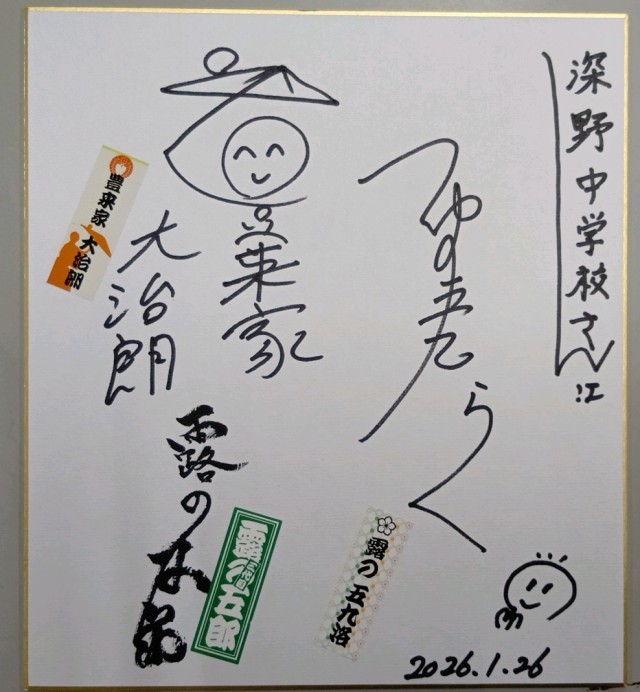 深野中学校さん江
つゆの五九
らく
豊来家
大治朗
豊来家 大治朗
露の
露の五郎
露の 五九洛
2026.1.26